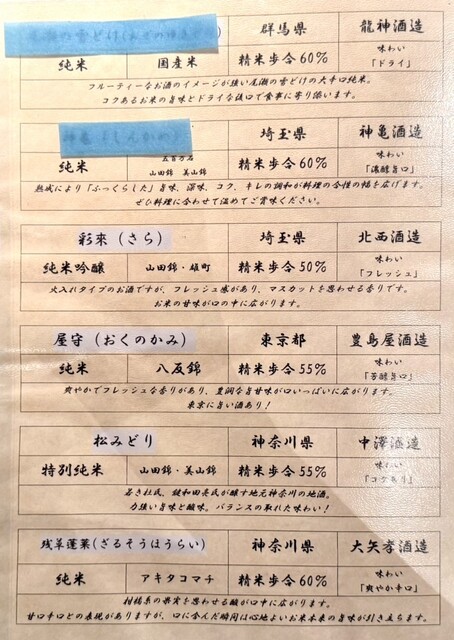 尾瀬の雪どけ(おぜのゆきどけ) 群馬県 龍神酒造
純米 国産米 精米歩合60% 味わい「ドライ」
フルーティーなお酒のイメージが強い尾瀬の雪どけの大辛口純米。
コクあるお米の旨味とドライな後口で食事に寄り添います。
神亀(しんかめ) 埼玉県 神亀酒造
純米 五百万石 山田錦 美山錦 精米歩合60% 味わい「濃醇旨口」
熟成により「ふっくらした」旨味、深味、コク、キレの調和が料理の合性の幅を広げます。
ぜひ料理に合わせて温めてご賞味ください。
彩來(さら) 埼玉県 北西酒造
純米吟醸 山田錦・雄町 精米歩合50% 味わい「フレッシュ」
火入れタイプのお酒ですが、フレッシュ感があり、マスカットを思わせる香りです。
お米の甘味が口の中に広がります。
屋守(おくのかみ) 東京都 豊島屋酒造
純米 八反錦 精米歩合55% 味わい「芳醇旨口」
爽やかでフレッシュな香りがあり、豊潤な旨甘味が口いっぱいに広がります。
東京に旨い酒あり!
松みどり 神奈川県 中澤酒造
特別純米 山田錦・美山錦 精米歩合55% 味わい「コクあり」
若き杜氏、鍵和田亮氏が醸す地元神奈川の地酒。
力強い旨味と酸味。バランスの取れた味わい!
残草蓬莱(ざるそうほうらい) 神奈川県 大矢孝酒造
純米 アキタコマチ 精米歩合60% 味わい「爽やか辛口」
柑橘系の果実を思わせる酸が口中に広がります。
甘口辛口との表現がありますが、口に含んだ瞬間は心地よいお米本来の旨味が引き立ちます。